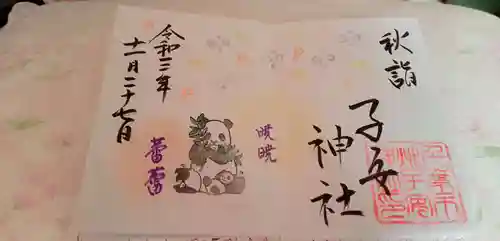 秋詣
子安
神社
暁暁
蕾蕾
令和三年
十一月二十七日